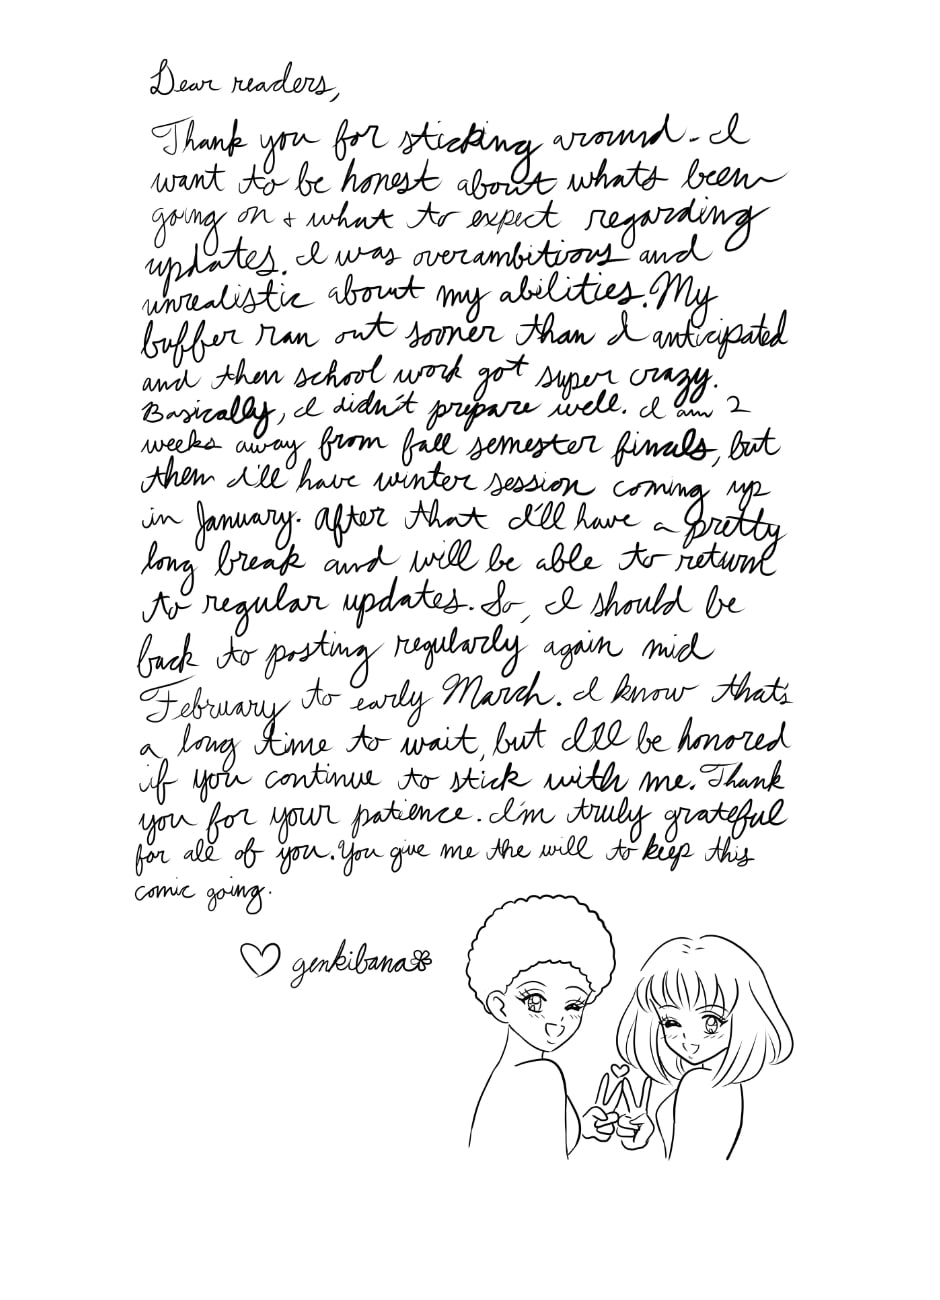 Dear readers,
Thank you for sticking around. I
want to be honest about whats been
going on + what to expect regarding
updates. I was overambitious and
unrealistic about my abilities. My
buffer ran out sooner than I anticipated
and then school work got super crazy.
Basically, I didn't prepare well. I am 2
weeks away from fall semester finals, but
then I'll have winter session coming up
in January. After that I'll have a pretty
long break and will be able to return
to regular updates. So, I should be
back to posting regularly again mid
February to early March. I know that's
a long time to wait, but I'll be honored
if you continue to stick with me. Thank
you for your patience. I'm truly grateful
for all of you. You give me the will to keep this
comic going.
genkibana